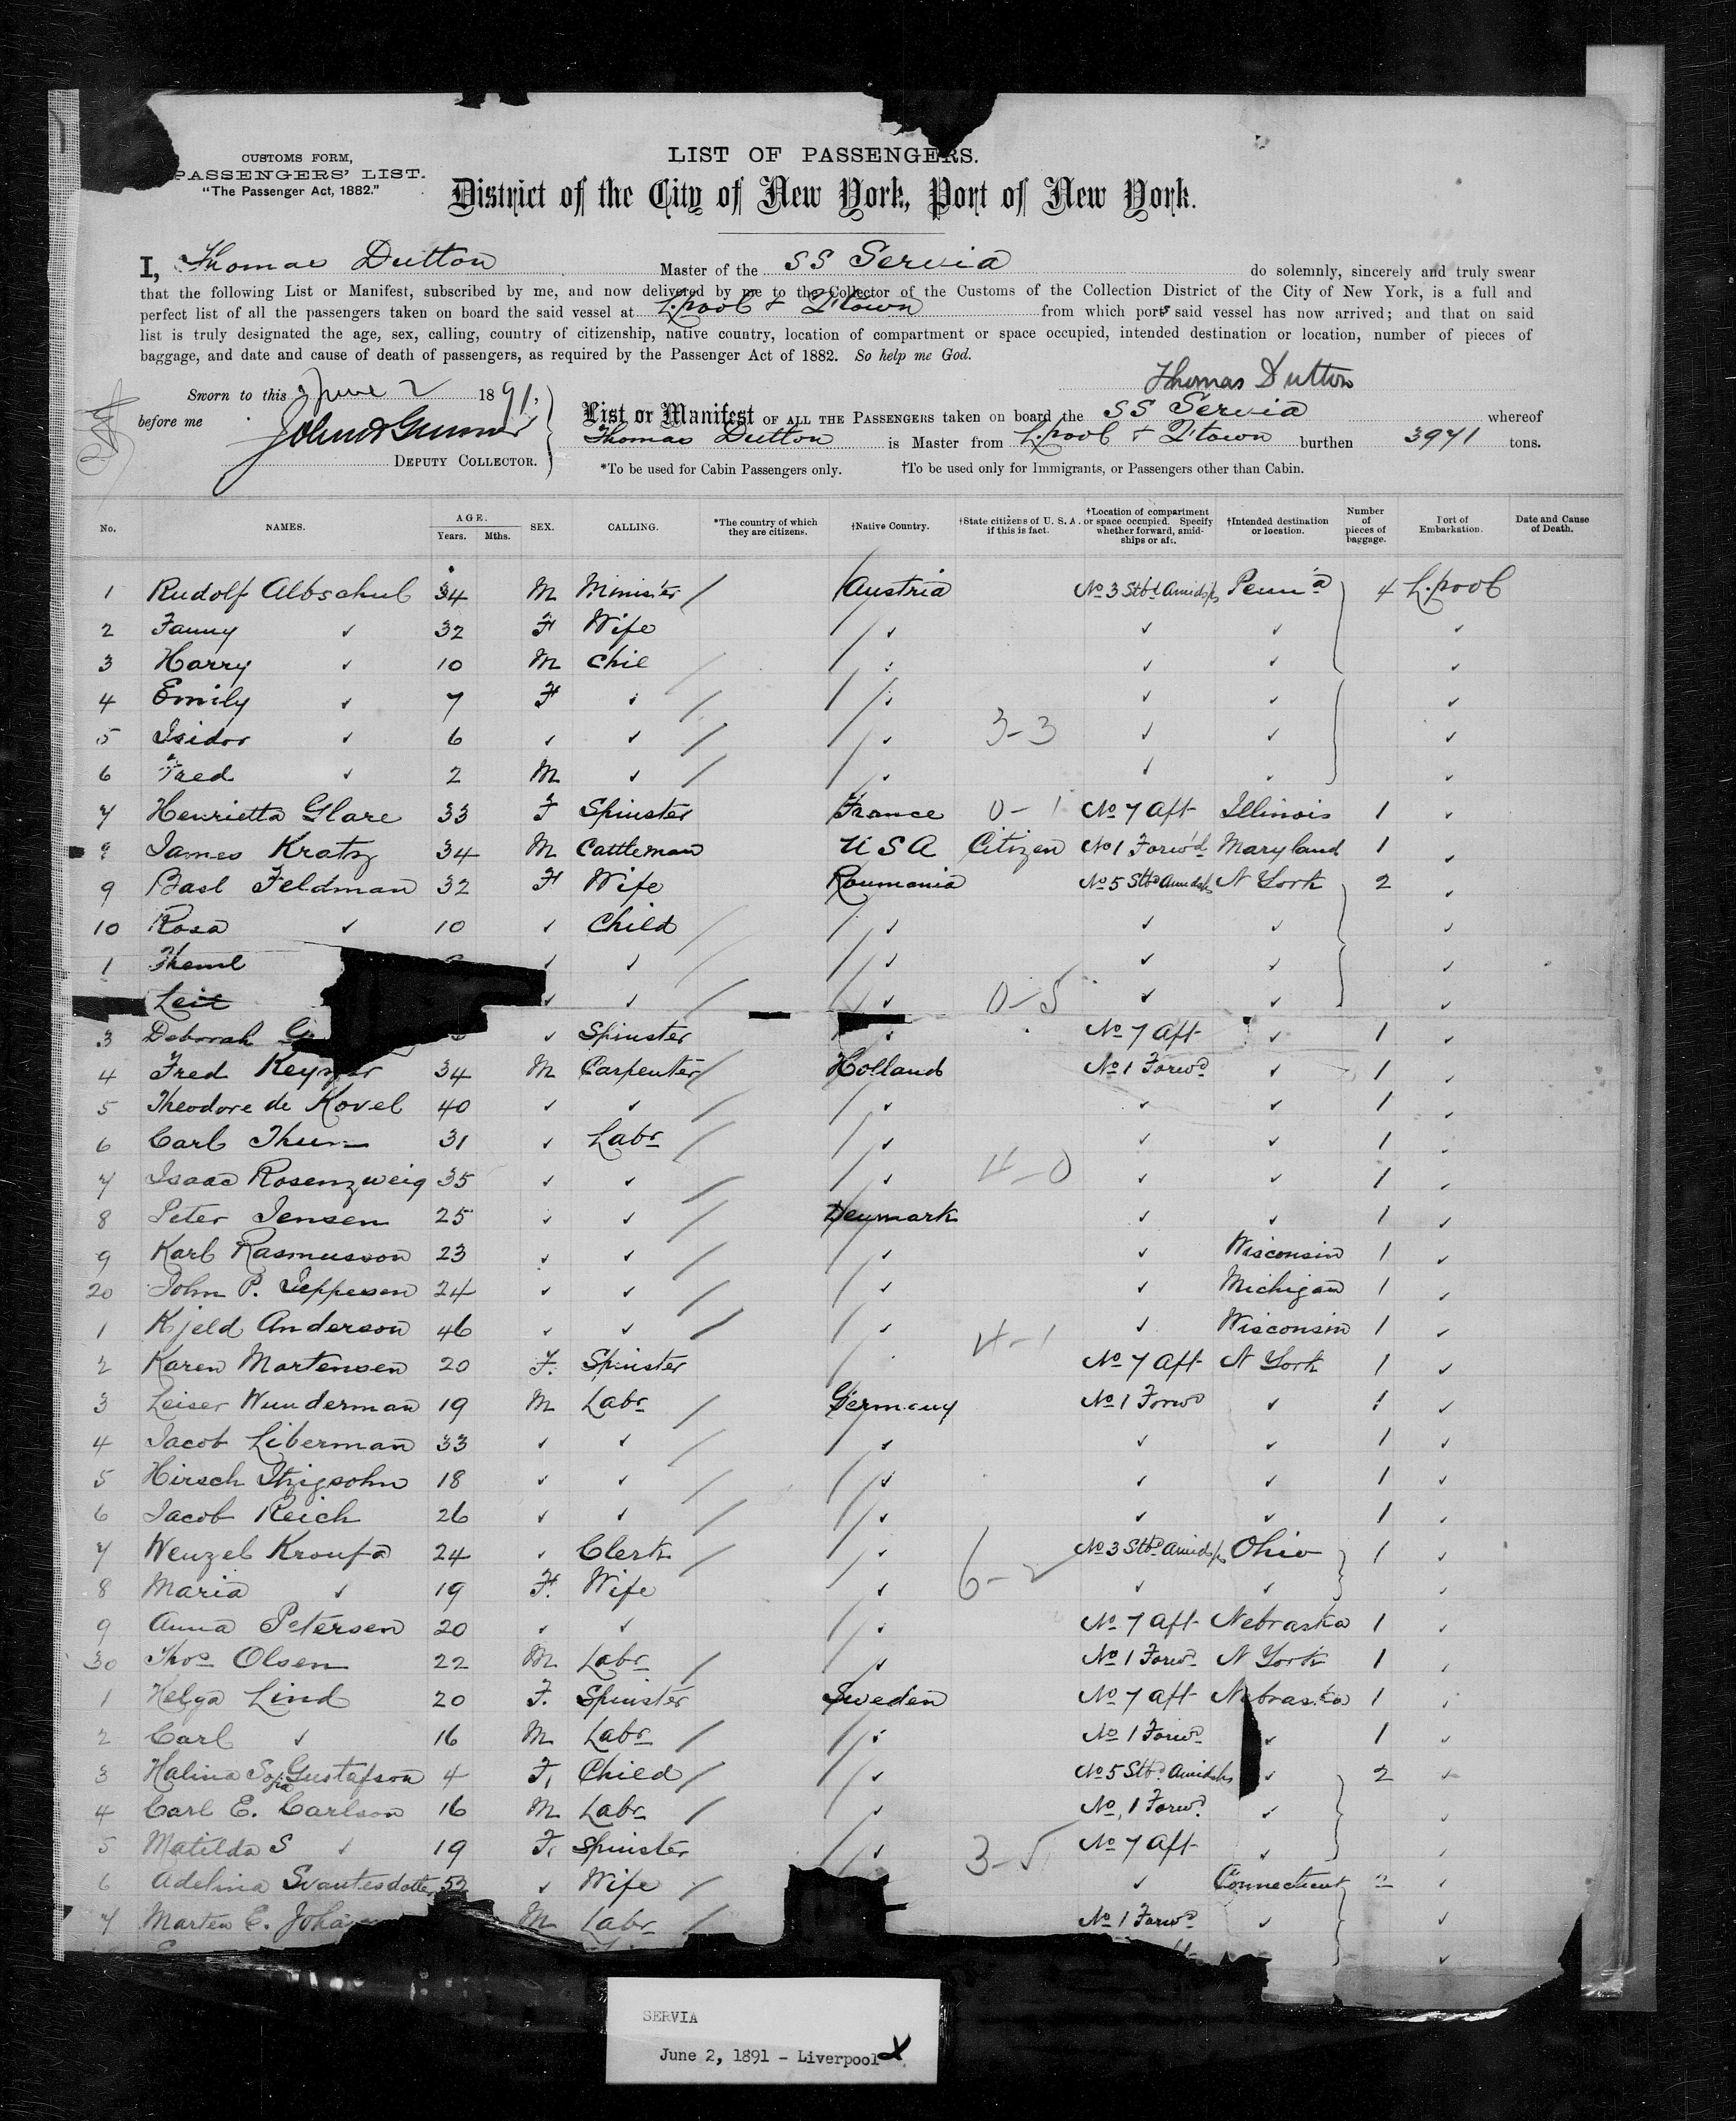 CUSTOMS FORM,
PASSENGERS' LIST.
"The Passenger Act, 1882."
LIST OF PASSENGERS.
District of the City of New York, Port of New York.
I, Thomas Dutton Master of the SS Servia do solemnly, sincerely and truly swear
that the following List or Manifest, subscribed by me, and now delivered by me to the Collector of the Customs of the Collection District of the City of New York, is a full and
perfect list of all the passengers taken on board the said vessel at L.pool & Q'town from which ports said vessel has now arrived; and that on said
list is truly designated the age, sex, calling, country of citizenship, native country, location of compartment or space occupied, intended destination or location, number of pieces of
baggage, and date and cause of death of passengers, as required by the Passenger Act of 1882. So help me God.
Thomas Dutton
Sworn to this June 2 1891,
before me
DEPUTY COLLECTOR.
List or Manifest OF ALL THE PASSENGERS taken on board the SS Servia whereof
Thomas Dutton is Master from L.pool & Q'town burthen 3971 tons.
*To be used for Cabin Passengers only. †To be used only for Immigrants, or Passengers other than Cabin.
No. NAMES. AGE. Years. Mths. SEX. CALLING. *The country of which they are citizens. †Native Country. †State citizens of U. S. A. if this is fact. †Location of compartment or space occupied. Specify whether forward, amidships or aft. †Intended destination or location. Number of pieces of baggage. Port of Embarkation. Date and Cause of Death.
1 Rudolf Albschul 34 M Minister Austria No 3 Stbd Amidsps Penn'a 4 L.pool
2 Fanny ✓ 32 F Wife ✓ ✓ ✓ ✓
3 Harry ✓ 10 M Chil ✓ ✓ ✓ ✓
4 Emily ✓ 7 F ✓ ✓ ✓ ✓ ✓
5 Isidor ✓ 6 ✓ ✓ ✓ 3-3 ✓ ✓ ✓
6 Fred ✓ 2 M ✓ ✓ ✓ ✓ ✓
7 Henrietta Glare 33 F Spinster France 0-1 No 7 Aft Illinois 1 ✓
8 James Kratz 34 M Cattleman USA Citizen No 1 Forw'd Maryland 1 ✓
9 Basl Feldman 32 F Wife Roumania No 5 Stbd Amidsps N York 2 ✓
10 Rosa ✓ 10 ✓ Child ✓ ✓ ✓ ✓
1 Theml ✓ ✓ ✓ ✓ ✓ ✓
Leit ✓ ✓ ✓ 0-5 ✓ ✓ ✓
3 Deborah ✓ Spinster ✓ No 7 Aft ✓ 1 ✓
4 Fred 34 M Carpenter Holland No 1 Forwd ✓ 1 ✓
5 Theodore de Kovel 40 ✓ ✓ ✓ ✓ ✓ 1 ✓
6 Carl Thurn 31 ✓ Labr ✓ ✓ ✓ 1 ✓
7 Isaac Rosenzweig 35 ✓ ✓ ✓ 4-0 ✓ ✓ 1 ✓
8 Peter Jensen 25 ✓ ✓ Denmark ✓ ✓ 1 ✓
9 Karl Rasmusson 23 ✓ ✓ ✓ ✓ Wisconsin 1 ✓
20 John P. Jeppesen 24 ✓ ✓ ✓ ✓ Michigan 1 ✓
1 Kjeld Anderson 46 ✓ ✓ ✓ 4-1 ✓ Wisconsin 1 ✓
2 Karen Mortensen 20 F. Spinster No 7 Aft N York 1 ✓
3 Leiser Wunderman 19 M Labr Germany No 1 Forwd ✓ 1 ✓
4 Jacob Liberman 33 ✓ ✓ ✓ ✓ ✓ 1 ✓
5 Hirsch Itzigsohn 18 ✓ ✓ ✓ ✓ ✓ 1 ✓
6 Jacob Reich 26 ✓ ✓ ✓ ✓ ✓ 1 ✓
7 Wenzel Kroupa 24 ✓ Clerk ✓ No 3 Stbd Amidsps Ohio 1 ✓
8 Maria ✓ 19 F. Wife ✓ 6-2 ✓ ✓ ✓
9 Anna Petersen 20 ✓ ✓ ✓ No 7 Aft Nebraska 1 ✓
30 Thos Olsen 22 M Labr ✓ No 1 Forwd N York 1 ✓
1 Helga Lind 20 F. Spinster Sweden No 7 Aft Nebraska 1 ✓
2 Carl ✓ 16 M Labr ✓ No 1 Forwd ✓ 1 ✓
3 Halina Sofia Gustafson 4 F. Child ✓ No 5 Stbd Amidsps ✓ 2 ✓
4 Carl E. Carlson 16 M Labr ✓ No 1 Forwd ✓ ✓
5 Matilda S ✓ 19 F. Spinster ✓ 3-5 No 7 Aft ✓ ✓
6 Adelina Svantesdotter 53 ✓ Wife ✓ Connecticut ✓
7 Marten E. M Labr No 1 Forwd ✓ ✓
SERVIA
June 2, 1891 - Liverpool